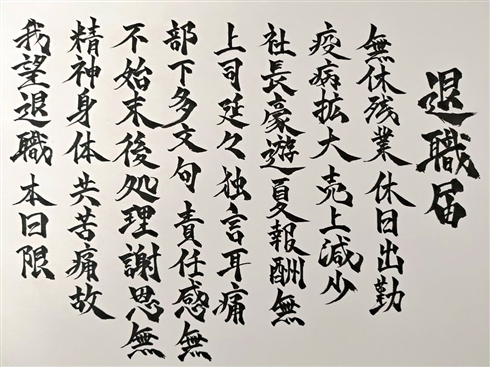 退職届
無休残業 休日出勤
疫病拡大 売上減少
社長豪遊 夏報酬無
上司延々 独言耳痛
部下多文句 責任感無
不始末後処理 謝恩無
精神身体 共苦痛故
我望退職 本日限